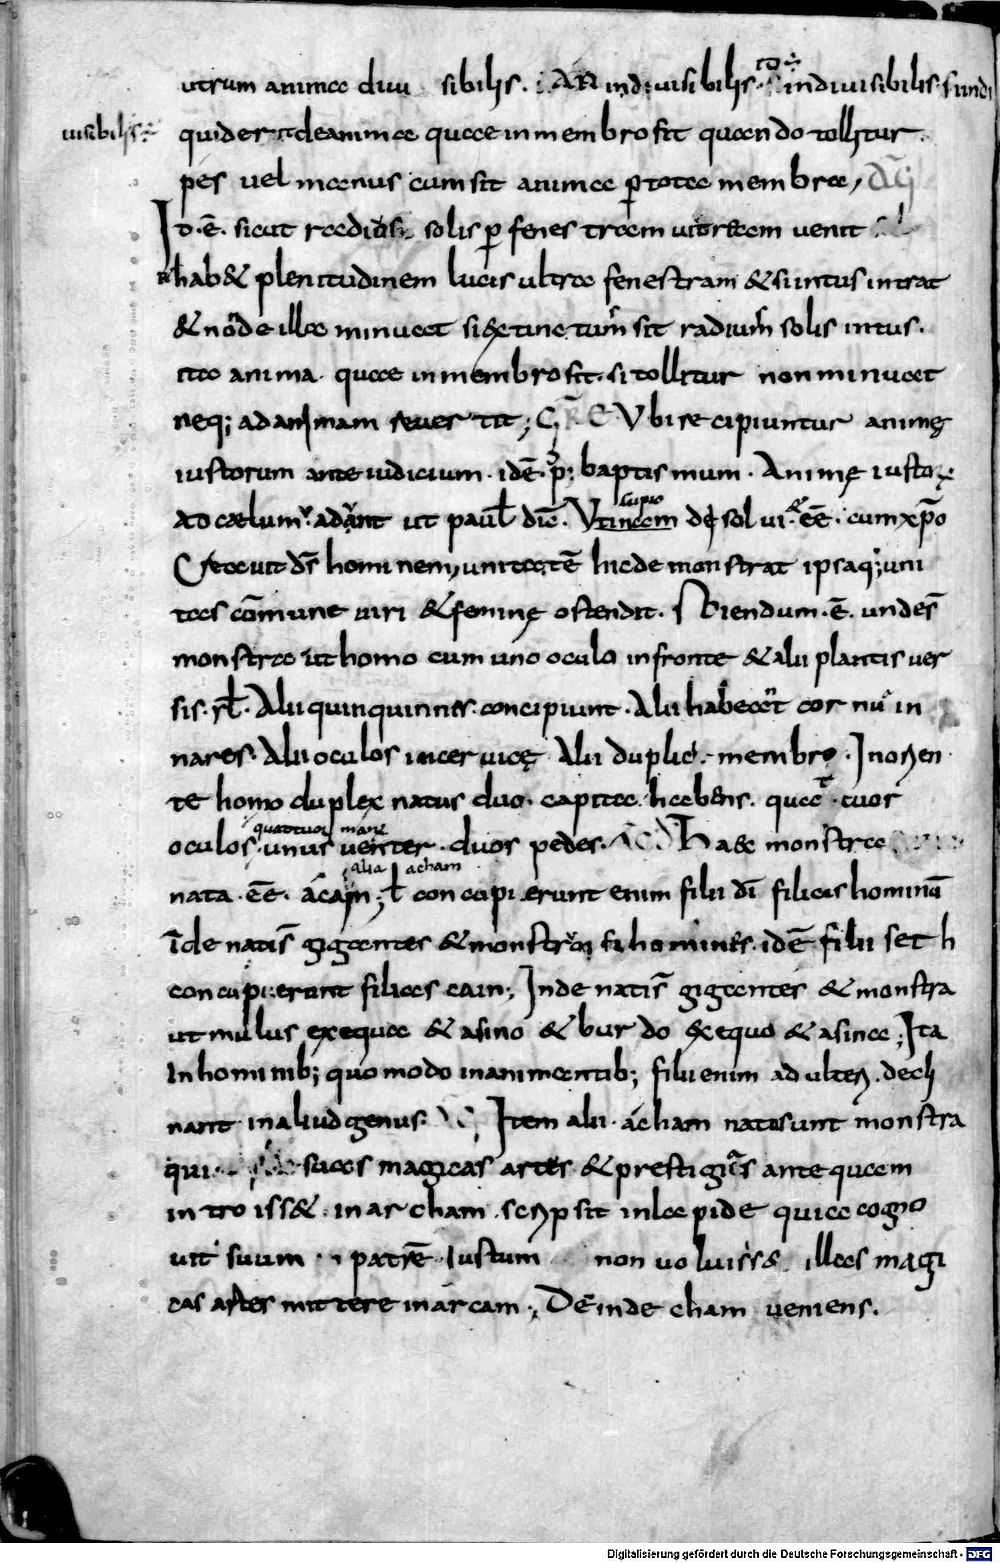 utrum anima diui sibilis. AN indiuisibilis. indiuisibilis. si indi
uisibilis
quid erit de anima quae in membro sit quando tollitur
pes uel manus cum sit anima p tota membra,
It. ē. sicut radius solis p fenestram uitream uenit
hab& plenitudinem lucis ultra fenestram & si intus intrat
& nō de illa minuaet si extinctum sit radium solis intus.
ita anima. quae in membro sit. si tollitur non minuaet
neq; ad animam reuertitur; Ubi recipiuntur animę
iustorum ante iudicium. idē. baptismum. Animę iusto
supio
ad cælum. ut paul dīc. Utinam dęsolui. eē. cum xpo
Creauit ds hominem, unitatē hic demonstrat ipsaq; uni
tas cōmune uiri & feminę ostendit. Sciendum. ē. unde s
monstra ut homo cum uno oculo in fronte & alii plantis uer
sis. Alii quinquinnes. concipiunt. Alii habeant cor in
nares. Alii oculos in ceruicę Alii duplic membra. In orien
te homo duplex natus duo. capita habens. quatuor
quattuor mane
oculos. unus uenter. duos pedes. Haec monstra
alia acham
nata. eē. acain; ł concupierunt enim filii dī filias hominū
Inde natis gigantes & monstra homines. idē filii seth
concupierunt filias cain; Inde natis gigantes & monstra
ut mulus ex equa & asino & burdo ex equo & asina; Ita
In hominib; quomodo in animantib; filii enim adulter. decli
nant in aliud genus. Item alii. acham nata sunt monstra
qui suas magicas artes & prestigias antequam
intro iss& in archam. scripsit in lapide quia cogno
uit suum patrē iustum non uoluiss& illas magi
cas artes mittere in arcam; Deinde cham ueniens.
Digitalisierung gefördert durch die Deutsche Forschungsgemeinschaft - DFG